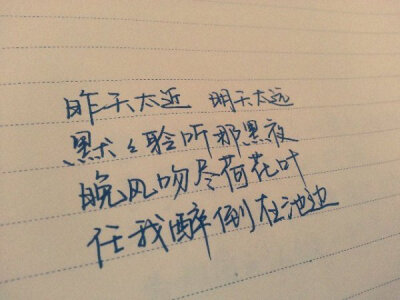 昨天太近 明天太远
默々聆听那黑夜
晚风吻尽荷花叶
任我醉倒在池边